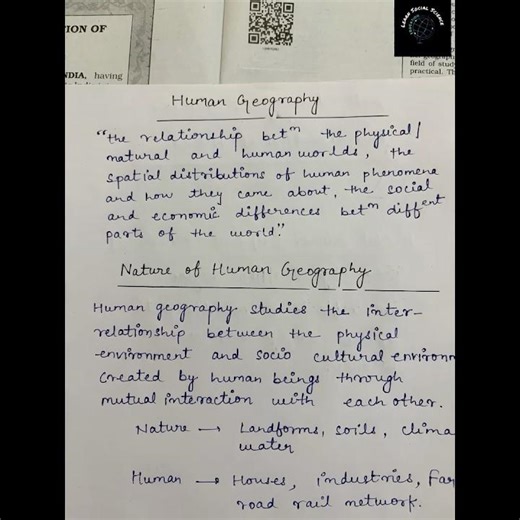 ION OF
NDIA, having
LEARN SOCIAL SCIENCE
field of study
practical. Th
Human Geography
"the relationship betⁿ the physical/
natural and human worlds, the
spatial distributions of human phenomena
and how they came about, the social
and economic differences betⁿ diffᵉⁿᵗ
parts of the world."
Nature of Human Geography
Human geography studies the inter-
relationship between the physical
environment and socio cultural environm
created by human beings through
mutual interaction with each other.
Nature → Landforms, soils, clima
water
Human → Houses, industries, Far
road rail network.